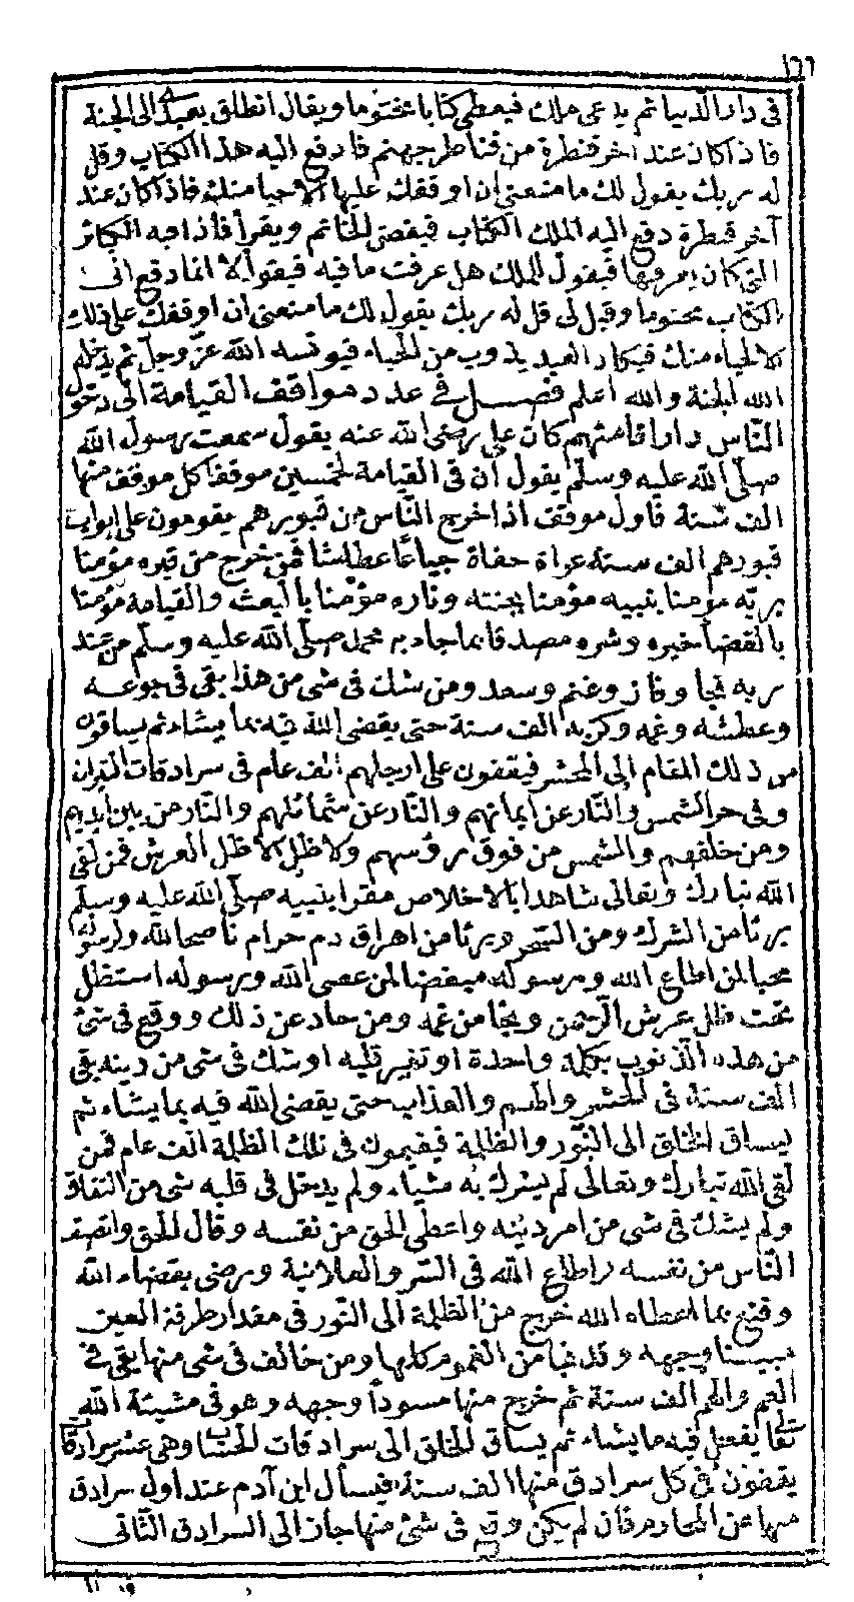 ١٦٦
في دار الدنيا ثم يدعى ملك فيعطى كتابا مختوما ويقال انطلق بعبدي الى الجنة
فاذا كان عند اخر قنطرة من قناطر جهنم فادفع اليه هذا الكتاب وقل
له ربك يقول لك ما منعني ان اوقفك عليها الا حيا منك فاذا كان عند
آخر قنطرة دفع اليه الملك الكتاب فيفض الخاتم ويقرأ فاذا فيه الكبائر
التي كان يعرفها فيقول للملك هل عرفت ما فيه فيقول لا انما دفع الى
الكتاب مختوما وقيل لي قل له ربك يقول لك ما منعني ان اوقفك على ذلك
الا الحياء منك فيكاد العبد يذوب من الحياء فيونسه الله عز وجل ثم يدخله
الله الجنة والله اعلم فصل في عدد مواقف القيامة الى دخول
الناس دار اقامتهم كان علي رضي الله عنه يقول سمعت رسول الله
صلّى الله عليه وسلّم يقول ان في القيامة لخمسين موقفا كل موقف منها
الف سنة فاول موقف اذا خرج الناس من قبورهم يقومون على ابواب
قبورهم الف سنة عراة حفاة جياعا عطاشا فمن خرج من قبره مؤمنا
بربّه مؤمنا بنبيه مؤمنا بجنته وناره مؤمنا بالبعث والقيامة مؤمنا
بالقضا خيره وشره مصدقا بما جاء به محمد صلّى الله عليه وسلّم من عند
ربه نجا وفاز وغنم وسعد ومن شك في شي من هذا بقي في جوعه
وعطشه وغمه وكربه الف سنة حتى يقضى الله فيه بما يشاء ثم يساقون
من ذلك المقام الى المحشر فيقفون على ارجلهم الف عام في سرادقات النيران
وفي حر الشمس والنّار عن ايمانهم والنّار عن شمائلهم والنّار من بين ايديهم
ومن خلفهم والشمس من فوق رؤسهم ولا ظل الا ظل العرش فمن لقي
الله تبارك وتعالى شاهدا بالاخلاص مقرا بنبيه صلّى الله عليه وسلّم
برئا من الشرك ومن السحر وبرئا من اهراق دم حرام ناصحا لله ولرسوله
محبا لمن اطاع الله ورسوله مبغضا لمن عصى الله ورسوله استظل
تحت ظل عرش الرحمن ونجا من غمه ومن حاد عن ذلك ووقع في شئ
من هذه الذنوب بكلمة واحدة او تغير قلبه او شك في شي من دينه بقي
الف سنة في الحشر والهم والعذاب حتى يقضى الله فيه بما يشاء ثم
يساق الخلق الى النور والظلمة فيقيمون في تلك الظلمة الف عام فمن
لقي الله تبارك وتعالى لم يشرك به شياء ولم يدخل في قلبه شي من النفاق
ولم يشك في شي من امر دينه واعطى الحق من نفسه وقال الحق وانصف
الناس من نفسه واطاع الله في السر والعلانية ورضي بقضاء الله
وقنع بما اعطاه الله خرج من الظلمة الى النور في مقدار طرفة العين
مبيضا وجهه وقد نجا من الغموم كلها ومن خالف في شي منها بقي في
الغم والهم الف سنة ثم خرج منها مسودا وجهه وهو في مشيئة الله
تعالى يفعل فيه ما يشاء ثم يساق الخلق الى سرادقات الحساب وهي عشر سرادقات
يقفون في كل سرادق منها الف سنة فيسأل ابن آدم عند اول سرادق
منها عن المحارم فان لم يكن وقع في شئ منها جاز الى السرادق الثاني